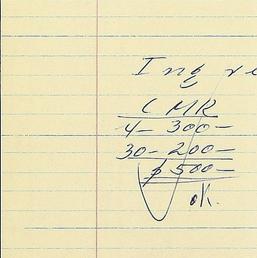 Ing
C MR
4- 300-
30- 200-
$ 500-
ok.